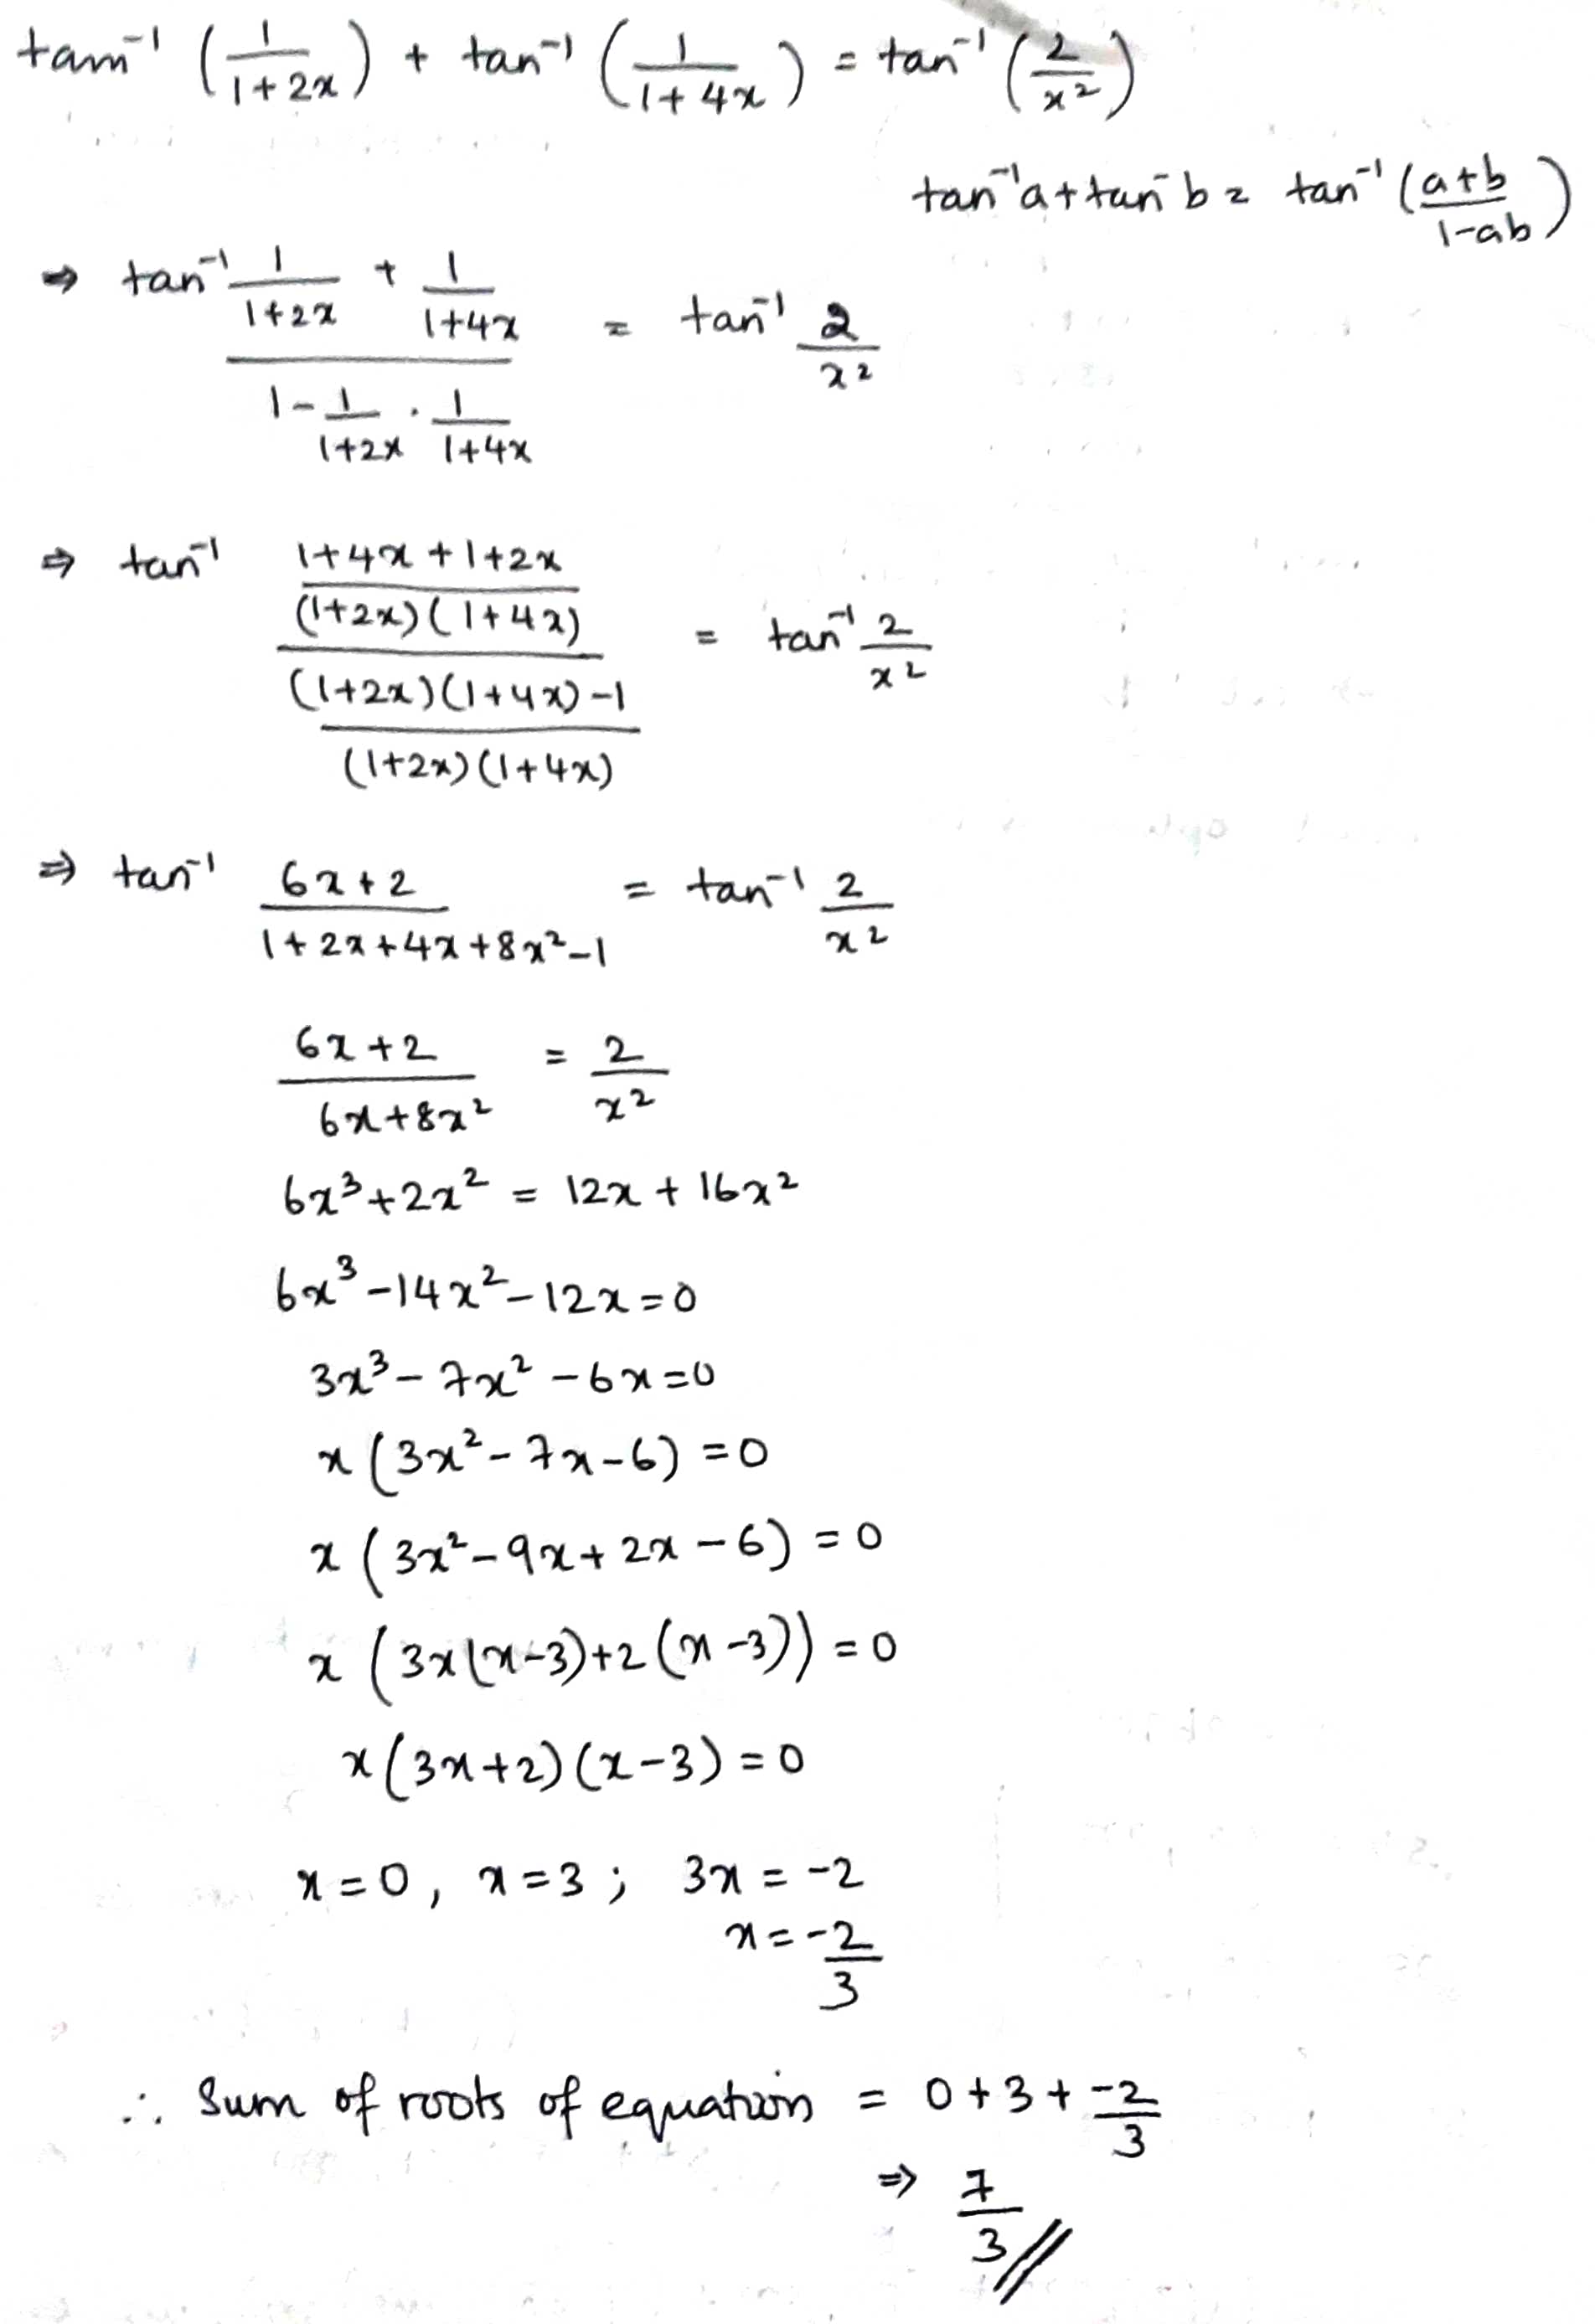 tan⁻¹ (1/(1+2x)) + tan⁻¹ (1/(1+4x)) = tan⁻¹ (2/x²)
tan⁻¹a + tan⁻b = tan⁻¹ ((a+b)/(1-ab))
⇒ tan⁻¹ (1/(1+2x) + 1/(1+4x))/(1 - 1/(1+2x) · 1/(1+4x)) = tan⁻¹ 2/x²
⇒ tan⁻¹ ((1+4x+1+2x)/((1+2x)(1+4x)))/(((1+2x)(1+4x)-1)/((1+2x)(1+4x))) = tan⁻¹ 2/x²
⇒ tan⁻¹ (6x+2)/(1+2x+4x+8x²-1) = tan⁻¹ 2/x²
(6x+2)/(6x+8x²) = 2/x²
6x³+2x² = 12x + 16x²
6x³-14x²-12x=0
3x³-7x²-6x=0
x(3x²-7x-6)=0
x(3x²-9x+2x-6)=0
x(3x(x-3)+2(x-3))=0
x(3x+2)(x-3)=0
x=0, x=3; 3x=-2
x=-2/3
∴ Sum of roots of equation = 0+3+-2/3
⇒ 7/3//